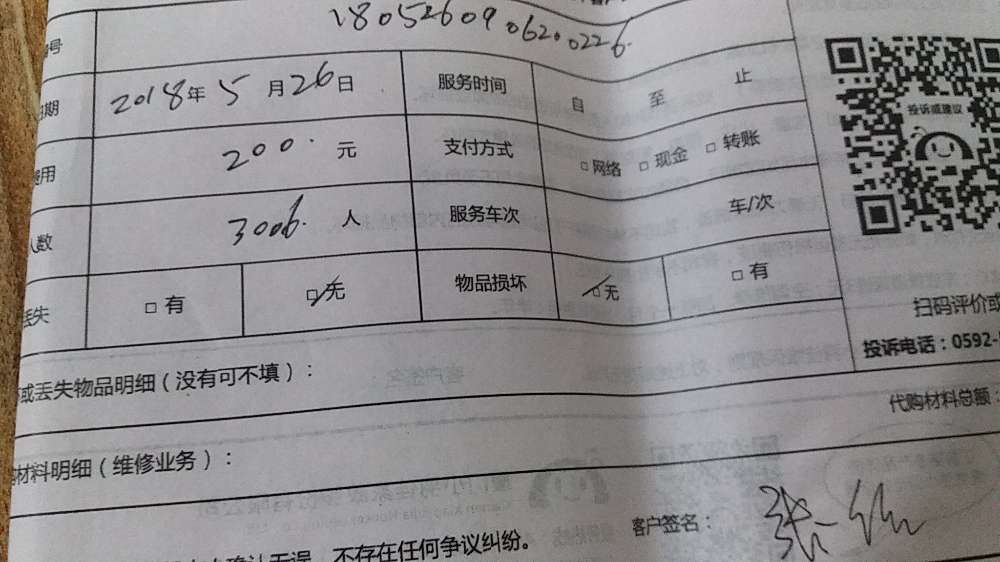 号 1805260906200226
日期 2018年5月26日 服务时间 自 至 止
费用 200 元 支付方式 □网络 □现金 □转账
人数 3006. 人 服务车次 车/次
丢失 □有 □无 物品损坏 □无 □有
投诉或建议
扫码评价或
投诉电话：0592-
或丢失物品明细（没有可不填）：
代购材料总额：
材料明细（维修业务）：
客户签名：
确认无误，不存在任何争议纠纷。